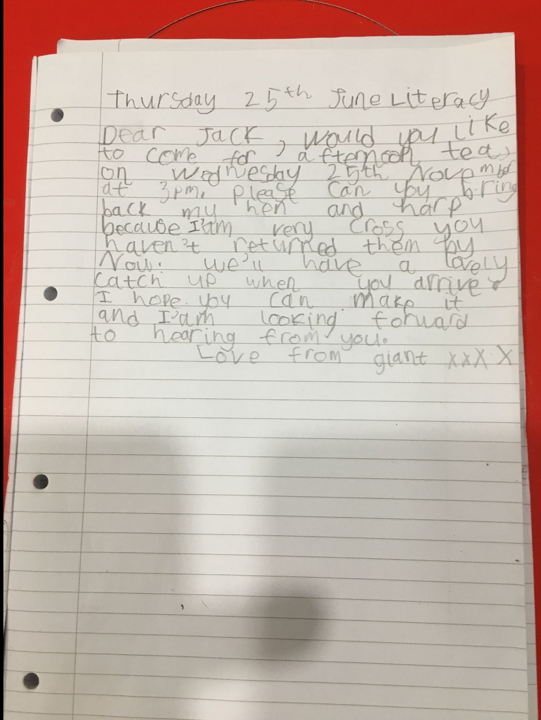 Thursday 25th June Literacy
Dear Jack, would you like
to come for afternoon tea,
on Wednesday 25th Novembe
at 3pm. please can you bring
back my hen and harp
because I'am very cross you
haven't returned them by
Now. we'll have a lovely
catch up when you arrive.
I hope you can make it
and I'am looking forward
to hearing from you.
Love from giant xxXX